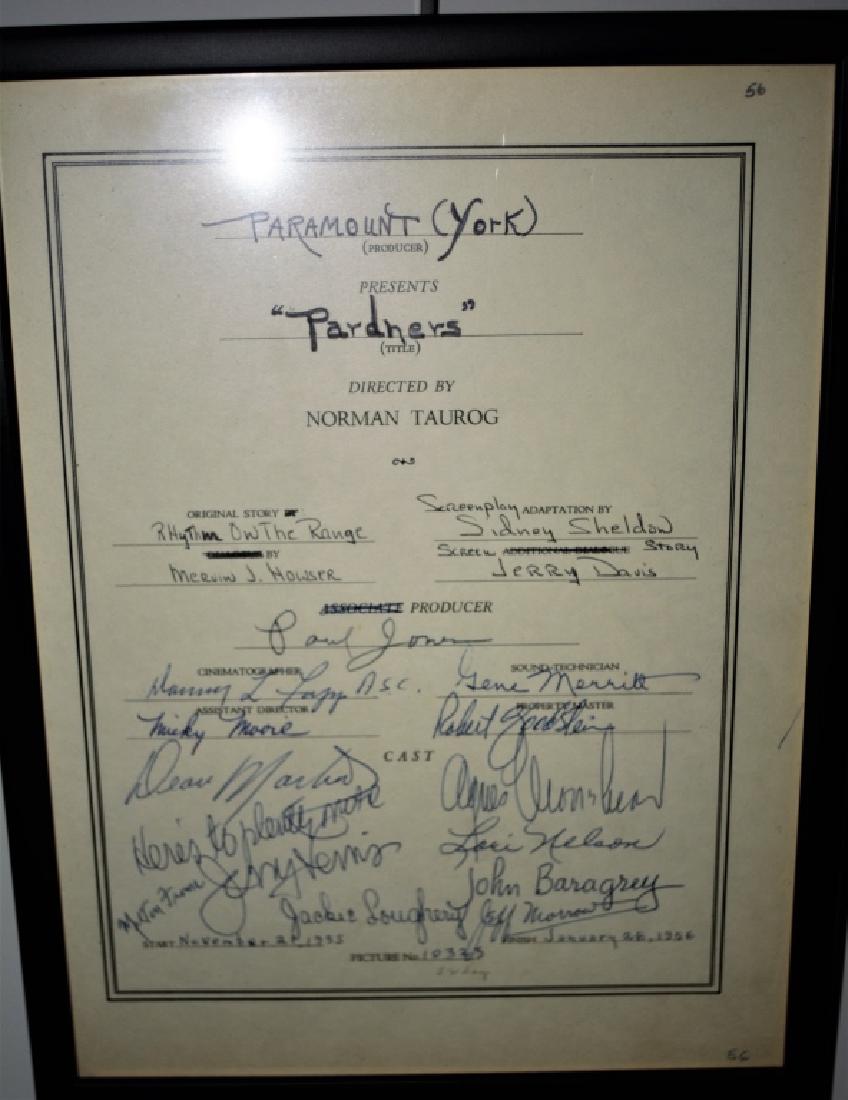 56
PARAMOUNT (York)
(PRODUCER)
PRESENTS
"Pardners"
(TITLE)
DIRECTED BY
NORMAN TAUROG
ORIGINAL STORY
Screenplay ADAPTATION BY
RHythm On The Range
Sidney Sheldon
BY
SCREEN ADDITIONAL DIALOGUE STORY
Mervin J. Houser
JERRY Davis
ASSOCIATE PRODUCER
Paul Jones
CINEMATOGRAPHER
SOUND TECHNICIAN
Daniel L. Fapp A.S.C.
Gene Merritt
ASSISTANT DIRECTOR
PROPERTY MASTER
Micky Moore
Robert
CAST
Dean Martin
Agnes Moorehead
Here's to plenty more
Lori Nelson
Jerry Lewis
John Baragrey
Jackie Loughery
Jeff Morrow
START November 21, 1955
FINISH January 28, 1956
PICTURE No. 10325
56